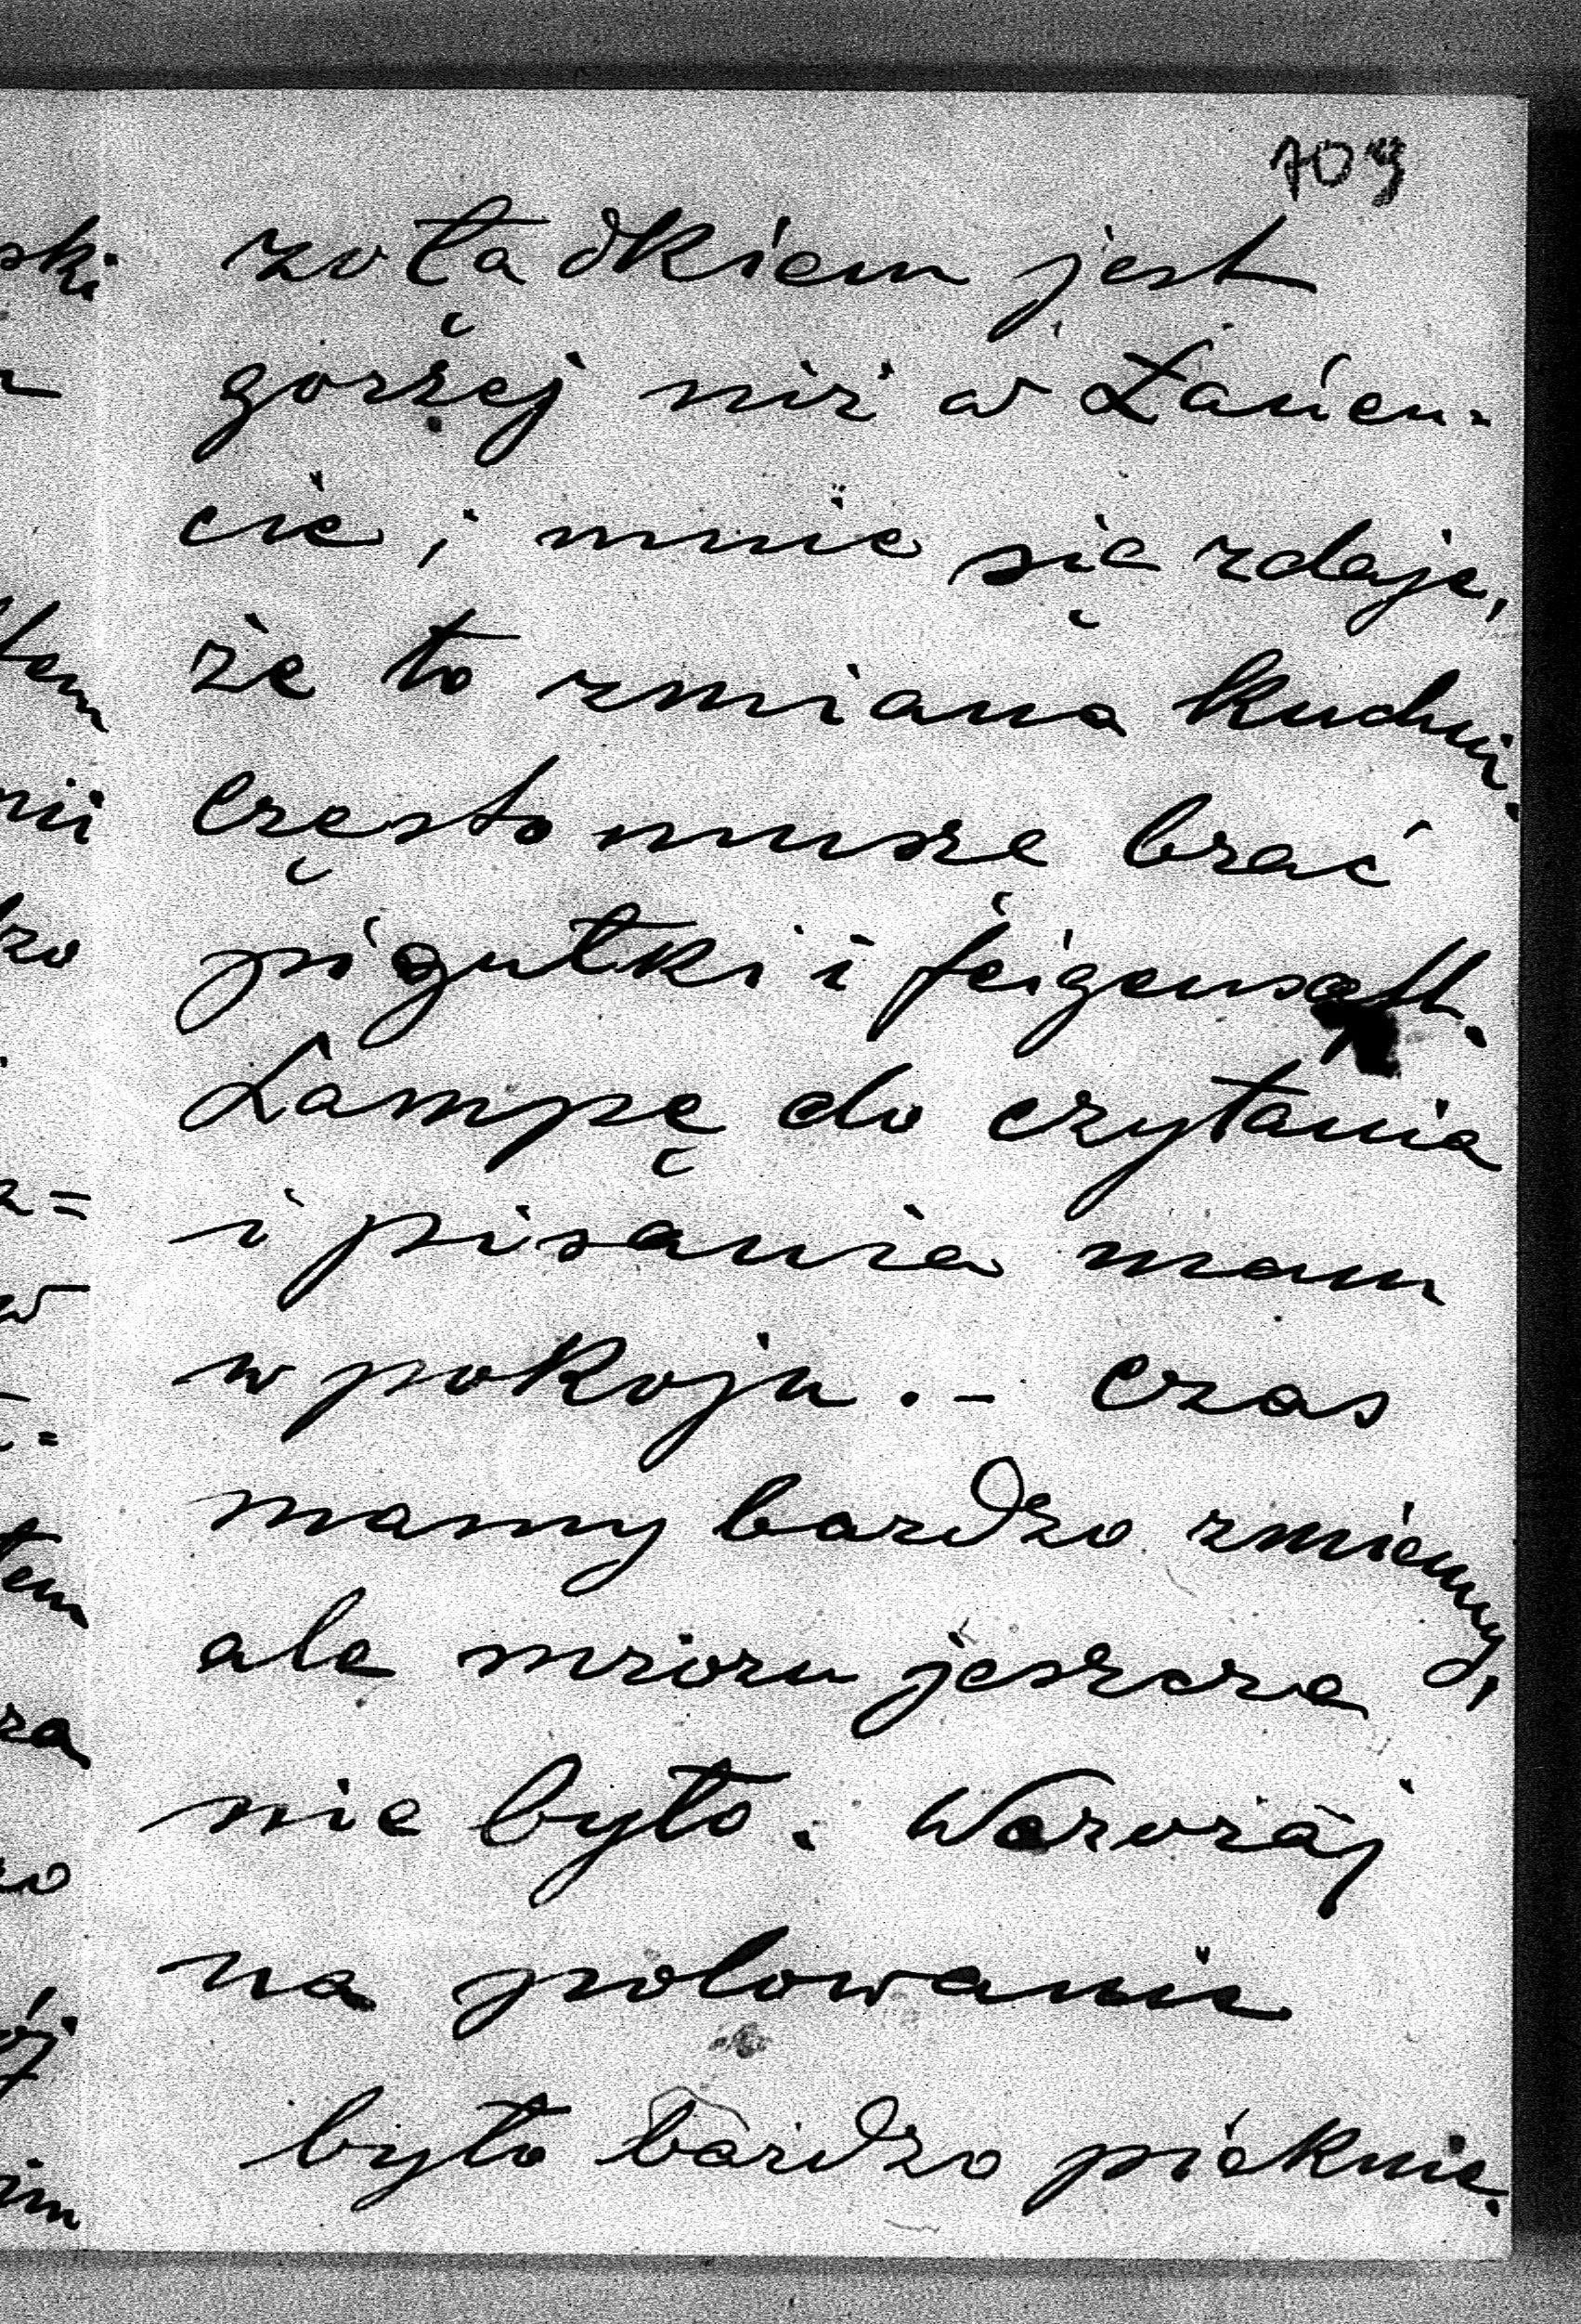 709
żołądkiem jest
gorzej niż w Łańcu-
cie, mnie się zdaje,
że to zmiana kuchni.
Często muszę brać
pigułki i feigensaft.
Lampę do czytania
i pisania mam
w pokoju. - Czas
mamy bardzo zmienny,
ale mrozu jeszcze
nie było. Wczoraj
na polowanie
było bardzo pięknie.